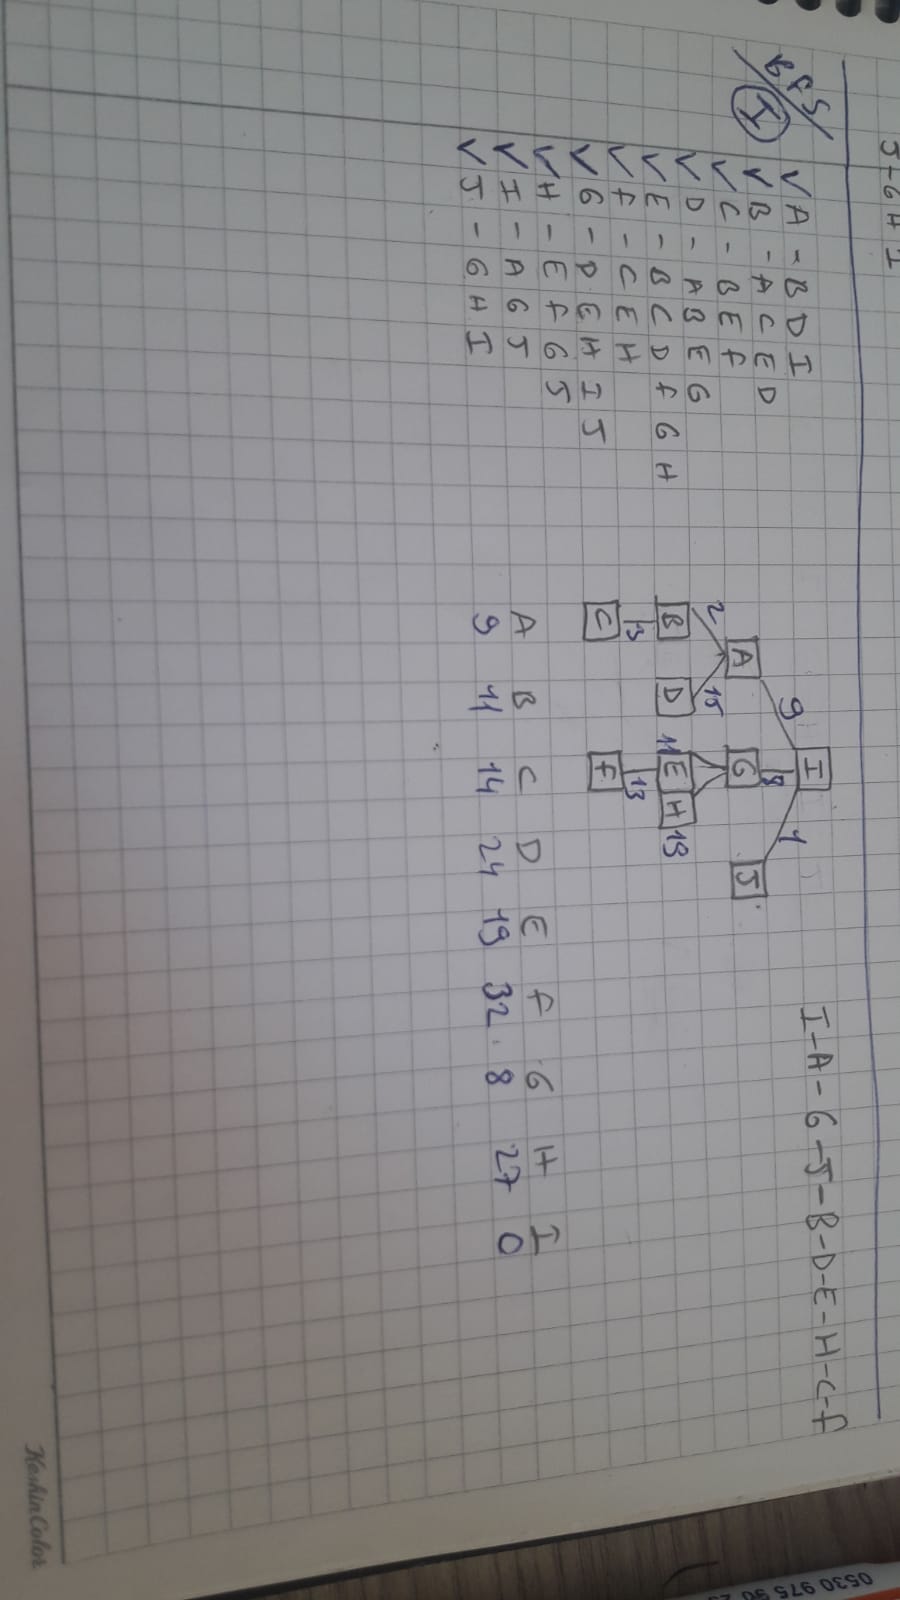 J-GHI
BFS/
I
✓ A - B D I
✓ B - A C E D
✓ C - B E F
✓ D - A B E G
✓ E - B C D F G H
✓ F - C E H
✓ G - D E H I J
✓ H - E F G J
✓ I - A G J
✓ J - G H I
I-A-G-J-B-D-E-H-C-F
I
9 8 1
A G J
2 15
B D 11 E H 19
3 13
C F
A B C D E F G H I
9 11 14 24 19 32 8 27 0
KeskinColor
0530 975 90